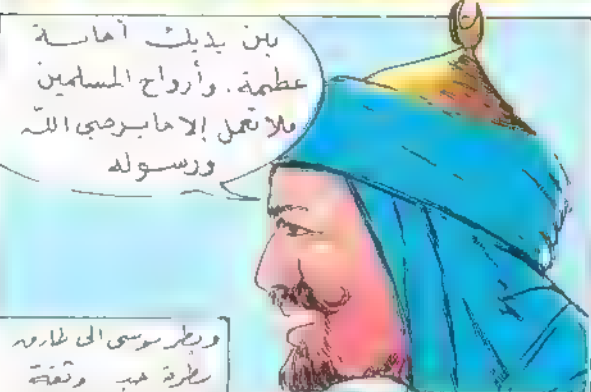 بين يديك أمانة
عظيمة. وأرواح المسلمين
فلا تعمل إلا ما يرضي الله
ورسوله
وينظر موسى الى طارق
نظرة حب وثقة